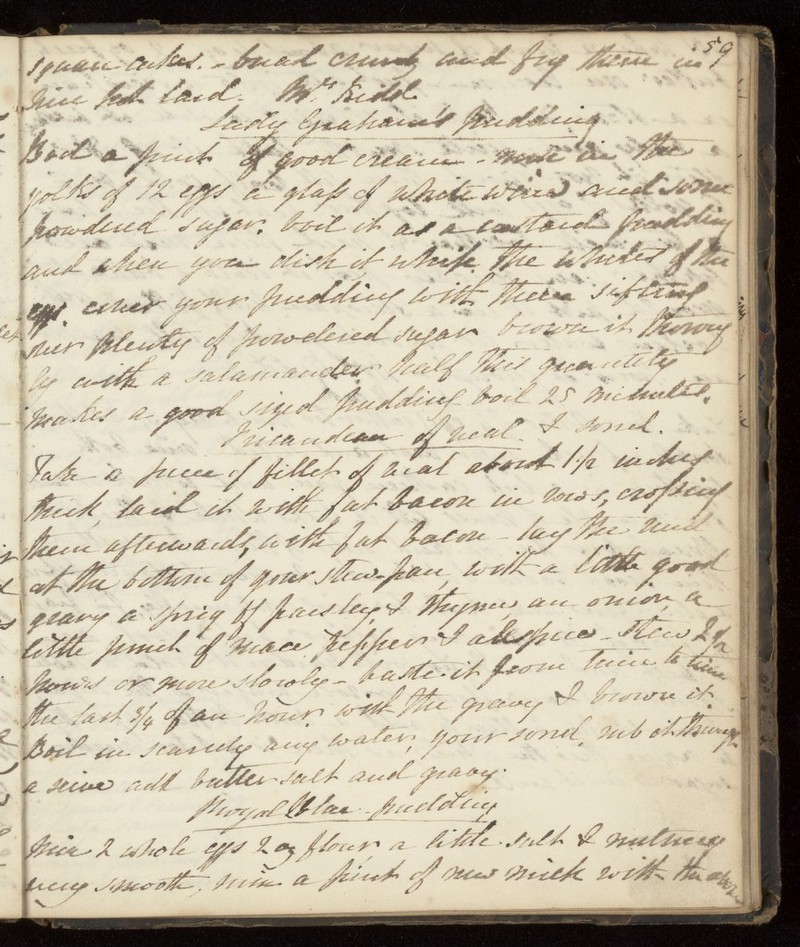 59
square cakes. - bread crumb and fry them in
nice hot lard. Mrs Kidd
Lady Graham's pudding
Boil a pint of good cream - mix in the
yolks of 12 eggs a glass of white wine and some
powdered sugar. boil it as a custard pudding
and when you dish it whip the whites of the
eggs. cover your pudding with them sifting
over plenty of powdered sugar brown it thoroug
ly with a salamander half this quantity
makes a good sized pudding boil 25 minutes.
Fricandeau of veal & sorrel.
Take a piece of fillet of veal about 1 1/2 inches
thick, lard it with fat bacon in rows, crossing
them afterwards, with fat bacon - lay the veal
at the bottom of your stew-pan, with a little good
gravy a sprig of parsley & thyme an onion, a
little pinch of mace pepper & allspice - stew 2 1/2
hours or more slowly - baste it from time to time
the last 3/4 of an hour with the gravy & brown it
Boil in scarcely any water, your sorrel, rub it through
a seive add butter salt and gravy.
pudding
Mix 2 whole eggs 2 oz flour a little salt & nutmeg
very smooth, mix a pint of new milk with the above